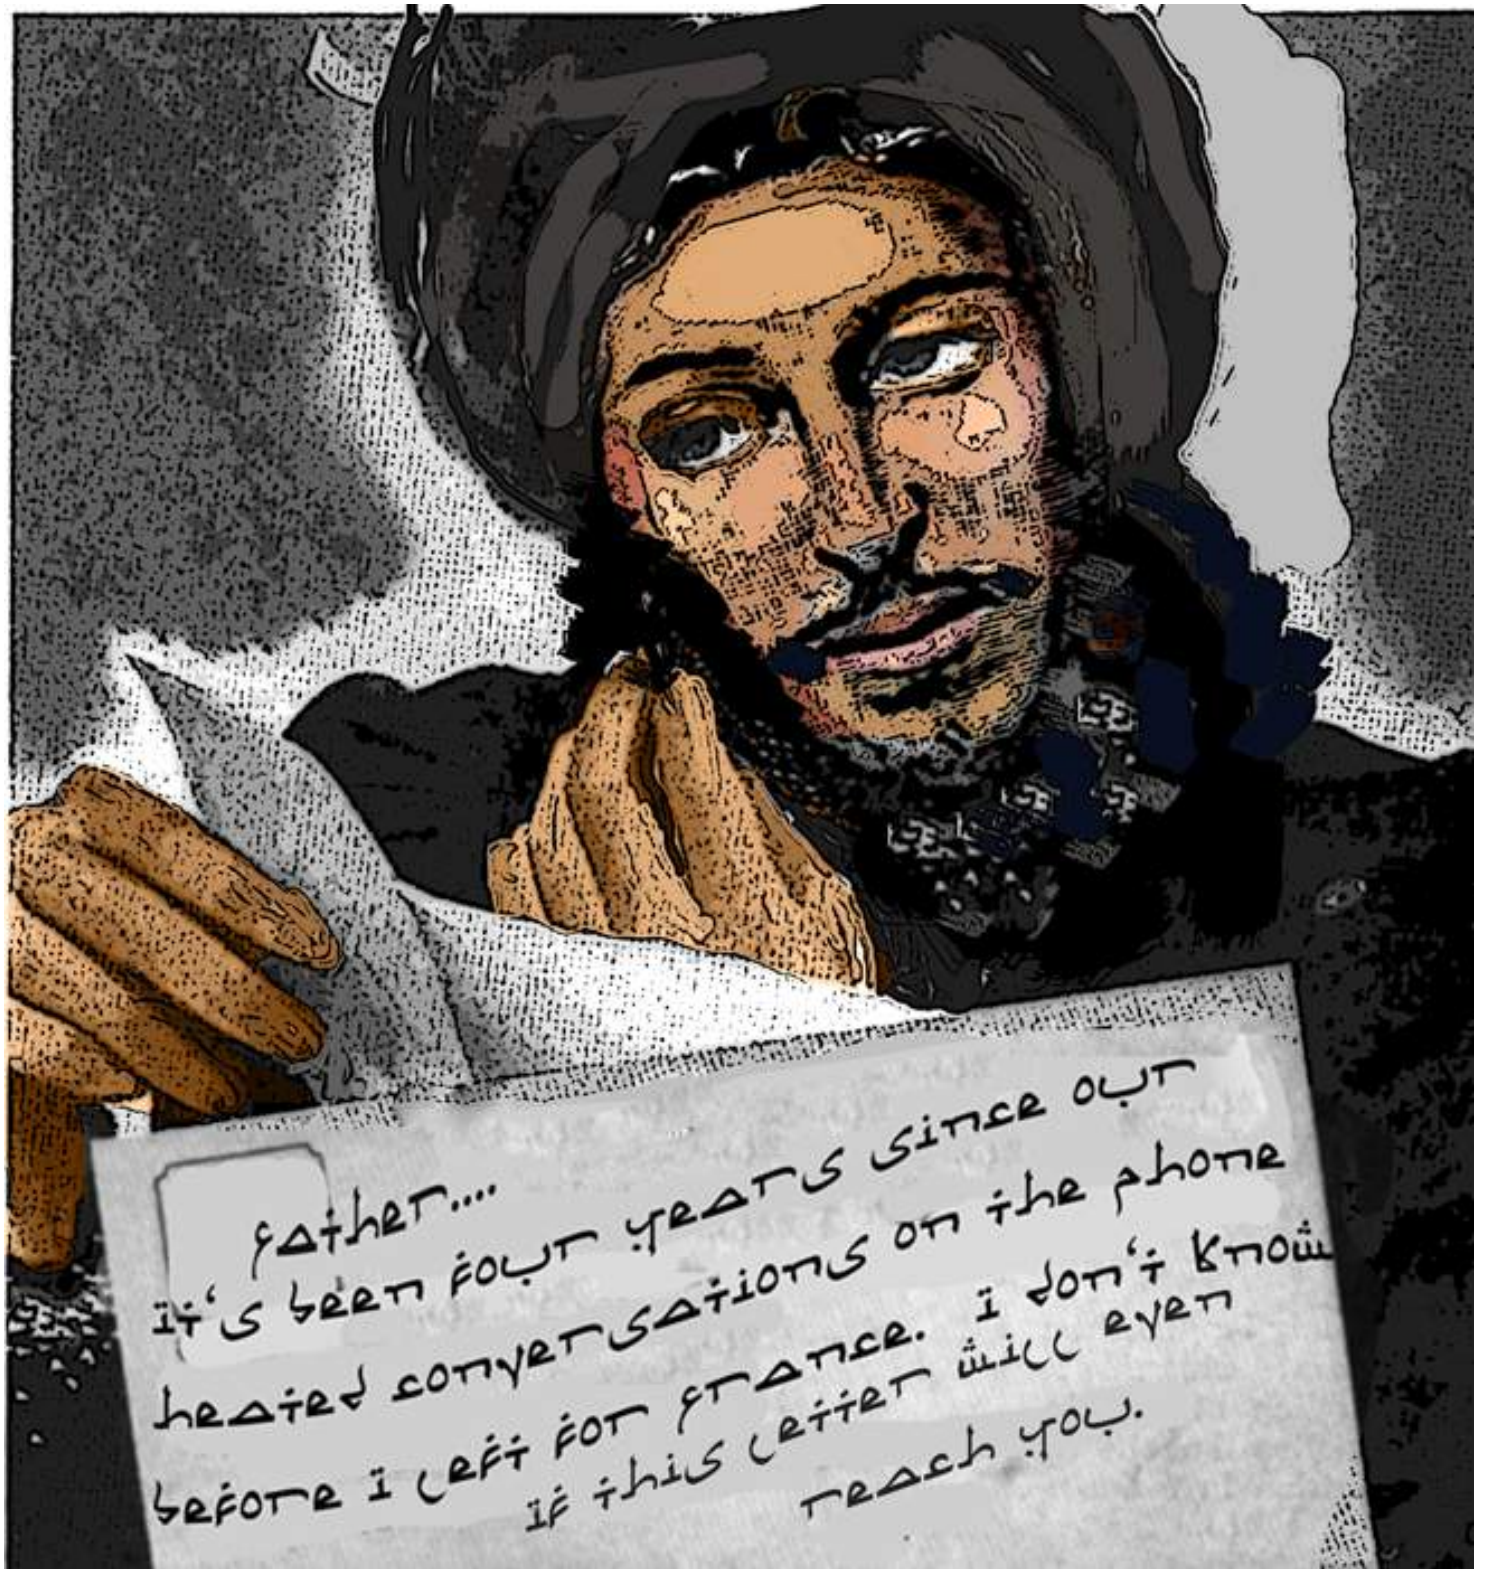 father....
it's been four years since our
heated conversations on the phone
before i left for france. i don't know
if this letter will even
reach you.